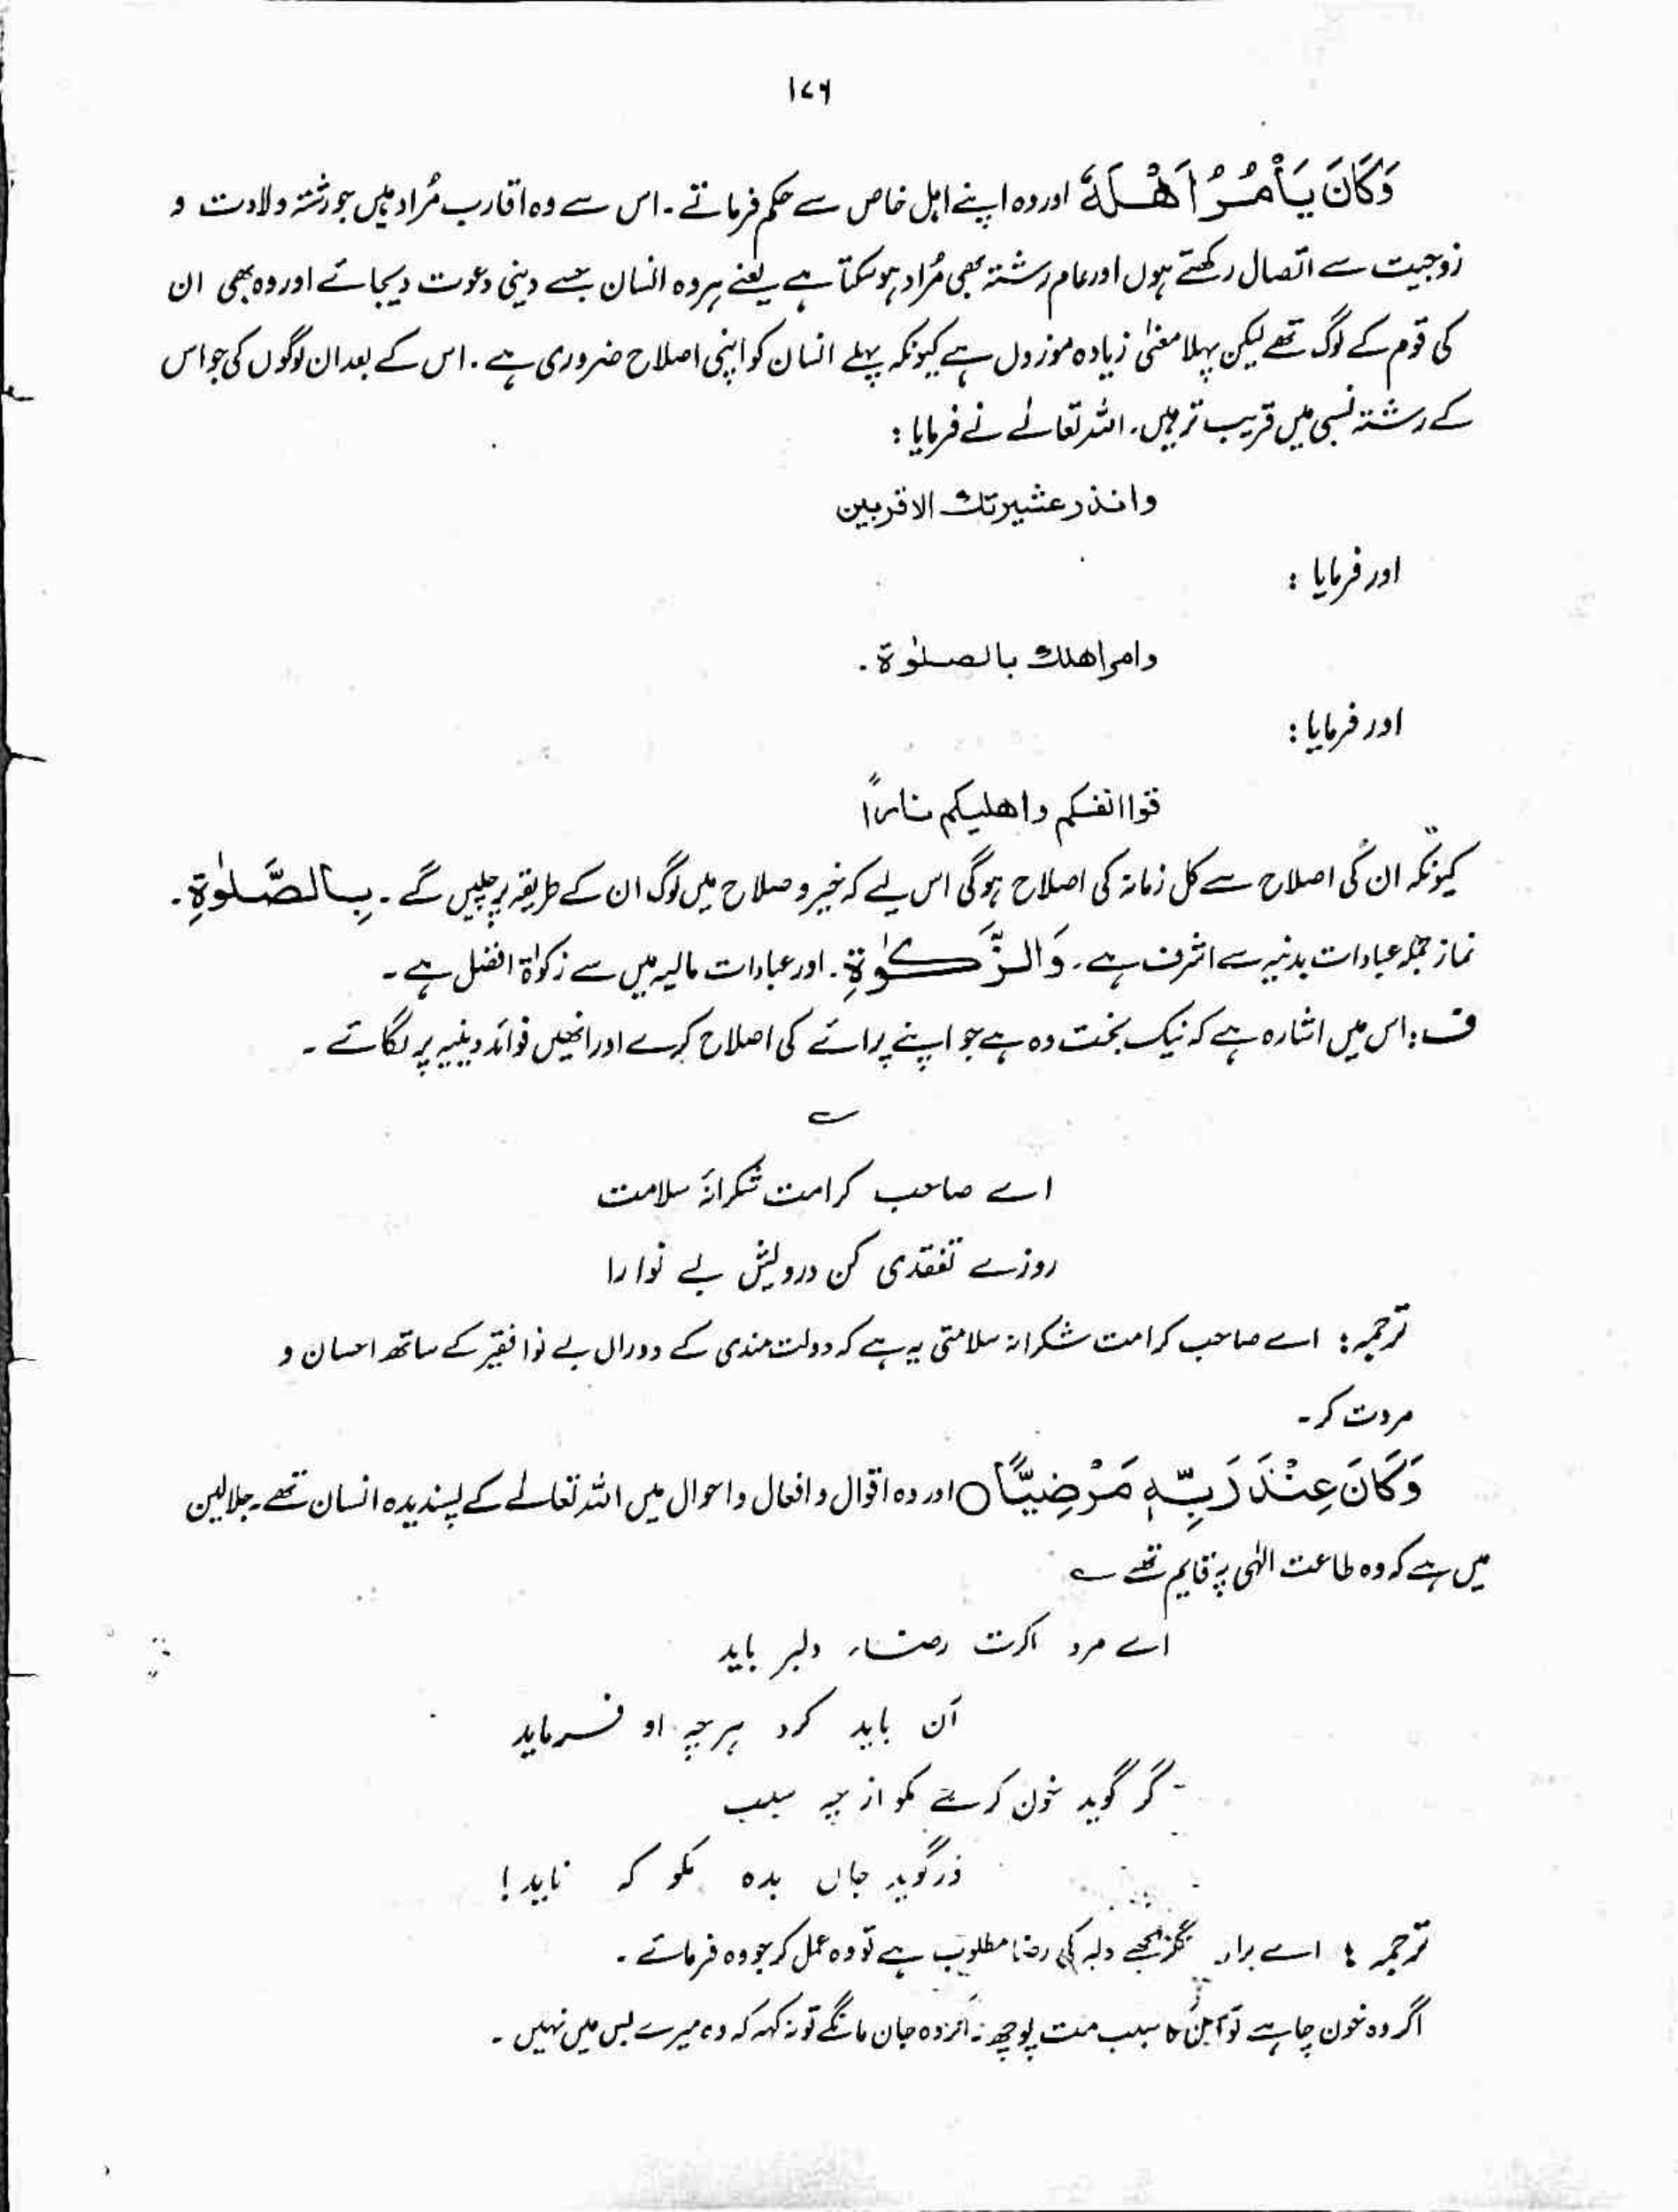 ۱۷۶
وَكَانَ يَأْمُرُ اَهْلَهٗ اور وہ اپنے اہل خاص سے حکم فرماتے ۔ اس سے وہ اقارب مُراد ہیں جو رشتۂ ولادت و
زوجیت سے اتصال رکھتے ہوں اور عام رشتہ بھی مُراد ہو سکتا ہے یعنے ہر وہ انسان جسے دینی دعوت دیجائے اور وہ بھی ان
کی قوم کے لوگ تھے لیکن پہلا معنیٰ زیادہ موزوں ہے کیونکہ پہلے انسان کو اپنی اصلاح ضروری ہے ۔ اس کے بعد ان لوگوں کی جو اس
کے رشتہ نسبی میں قریب تر ہیں ۔ اللہ تعالےٰ نے فرمایا :
وانذر عشیرتك الاقربین
اور فرمایا :
وامر اهلك بالصلوٰة ۔
اور فرمایا :
قوا انفسکم واهلیکم نارًا
کیونکہ ان کی اصلاح سے کل زمانہ کی اصلاح ہوگی اس لیے کہ خیر و صلاح میں لوگ ان کے طریقہ پر چلیں گے ۔ بِالصَّلٰوةِ ۔
نماز جملہ عبادات بدنیہ سے اشرف ہے ۔ وَالزَّكٰوةِ ۔ اور عبادات مالیہ میں سے زکوٰۃ افضل ہے ۔
ف : اس میں اشارہ ہے کہ نیک بخت وہ ہے جو اپنے پرائے کی اصلاح کرے اور انھیں فوائد دینیہ پر لگائے ۔
؎
اے صاحب کرامت شکرانۂ سلامت
روزے تفقدی کن درویش بے نوا را
ترجمہ : اے صاحب کرامت شکرانہ سلامتی یہ ہے کہ دولت مندی کے دوراں بے نوا فقیر کے ساتھ احسان و
مروت کر ۔
وَكَانَ عِنْدَ رَبِّهٖ مَرْضِيًّا ○ اور وہ اقوال و افعال و احوال میں اللہ تعالےٰ کے پسندیدہ انسان تھے ۔ جلالین
میں ہے کہ وہ طاعت الٰہی پر قایم تھے ؎
اے مرد اگرت رضاء دلبر باید
آن باید کرد ہرچہ او فرماید
گر گوید خون گرے مگو از چہ سبب
ورگوید جاں بدہ مگو کہ ناید !
ترجمہ : اے برادر تجھے دلبر کی رضا مطلوب ہے تو وہ عمل کر جو وہ فرمائے ۔
اگر وہ خون چاہے تو اس کا سبب مت پوچھ ۔ اگر وہ جان مانگے تو نہ کہہ کہ وہ میرے بس میں نہیں ۔